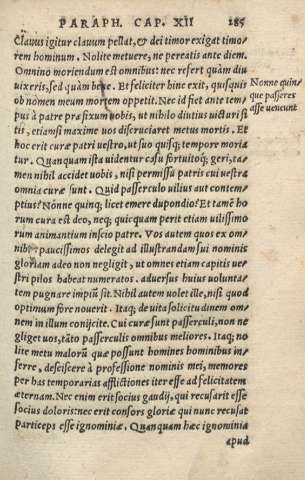 PARAPH. CAP. XII 285
Clauus igitur clauum pellat, & dei timor exigat timo/
rem hominum. Nolite metuere, ne pereatis ante diem.
Omnino moriendum est omnibus: nec refert quàm diu
uixeris, sed quàm bene. Et feliciter hinc exit, quisquis
ob nomen meum mortem oppetit. Nec id fiet ante tem/
pus à patre præfixum uobis, ut nihilo diutius uicturi sí
tis, etiamsi maxime uos discruciaret metus mortis. Et
hoc erit curæ patri uestro, ut suo quisq; tempore moria
tur. Quanquam ista uidentur casu fortuitoq; geri, ta/
men nihil accidet uobis, nisi permissu patris cui uestra
omnia curæ sunt. Quid passerculo uilius aut contem/
ptius? Nonne quinq; licet emere dupondio? Et tamē ho
rum cura est deo, neq; quicquam perit etiam uilissimo
rum animantium inscio patre. Vos autem quos ex om/
nibus paucissimos delegit ad illustrandam sui nominis
gloriam adeo non negligit, ut omnes etiam capitis ue/
stri pilos habeat numeratos. aduersus huius uolunta/
tem pugnare impiū sit. Nihil autem uolet ille, nisi quod
optimum fore nouerit. Itaq; de uita solicitudinem om/
nem in illum conijcite. Cui curæ sunt passerculi, non ne
gliget uos, tāto passerculis omnibus meliores. Itaq; no
lite metu malorū quæ possunt homines hominibus in/
ferre, desciscere à professione nominis mei, memores
per has temporarias afflictiones iter esse ad felicitatem
æternam. Nec enim erit socius gaudij, qui recusarit esse
socius doloris: nec erit consors gloriæ qui nunc recusat
particeps esse ignominiæ. Quanquam hæc ignominia
apud
Nonne quin/
que passeres
asse ueneunt